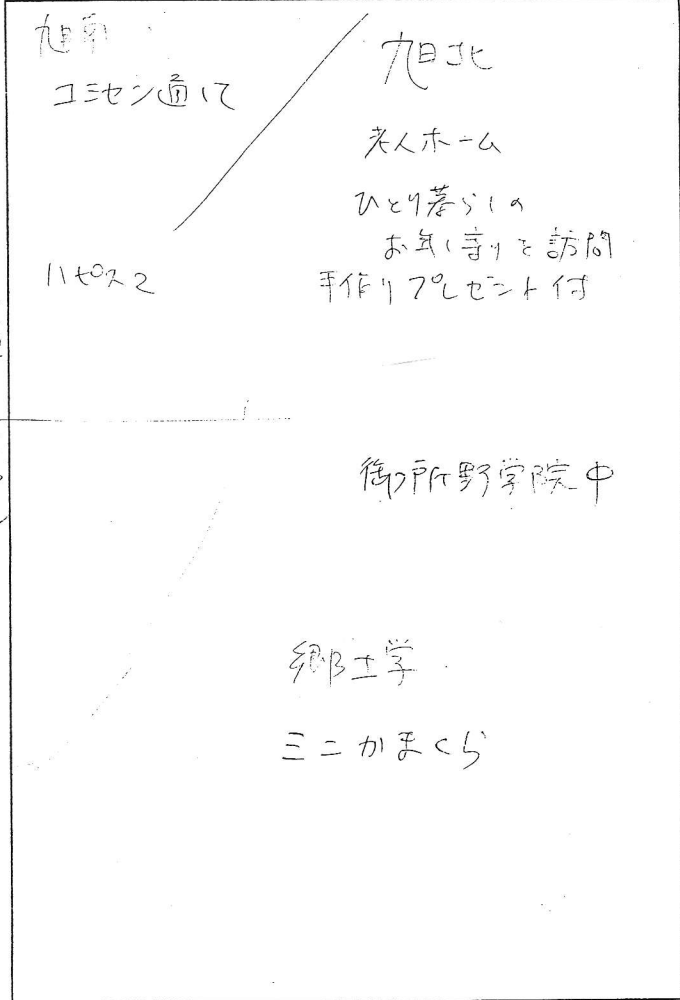 旭南
コミセン通して
ハピス2
旭北
老人ホーム
ひとり暮らしの
お年寄りを訪問
手作りプレゼント付
御所野学院中
郷土学
ミニかまくら